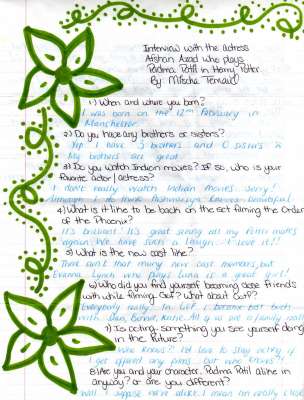 Interview with the actress
Afshan Azad who plays
Padma Patil in Harry Potter
By Mischa
1) When and where you born?
I was born on the 12th February in
Manchester
2) Do you have any brothers or sisters?
Yep I have 3 brothers and 0 sisters
My brothers are great
3) Do you watch Indian movies? If so, who is your
favorite actor/actress?
I don't really watch Indian movies, sorry!
Although I do think Aishwarya is beautiful
4) What is it like to be back on the set filming the Order
of the Phoenix?
It's brilliant. It's great seeing all my Potter mates
again. We have such a laugh. I love it!!
5) What is the new cast like?
There isn't that many new cast members but
Evanna Lynch who plays Luna is a great girl!
6) Who did you find yourself becoming close friends
with while filming GoF? What about OotP?
Everybody really. In GoF I became best buds
with Dan, Bonnie, Katie. All of us are a family really
7) Is acting something you see yourself doing
in the future?
Who knows?! I'd love to stay acting if
I get offered any parts. But who knows?!
8) Are you and your character, Padma Patil alike in
anyway? or are you different?
Well I suppose were alike. I mean